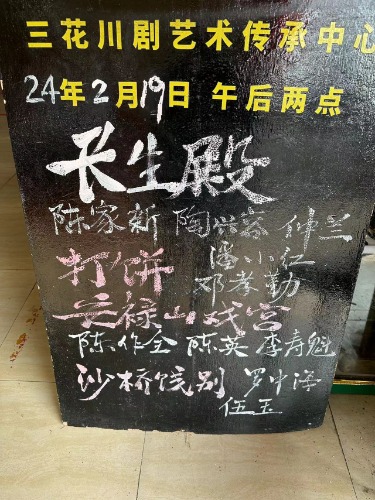 三花川剧艺术传承中心
24年2月19日 午后两点
长生殿
陈家新 陶兴蓉 仲兰
打饼 潘小红
邓孝勤
安禄山戏宫
陈作全 陈英 李寿魁
沙桥饯别 罗中海
伍玉